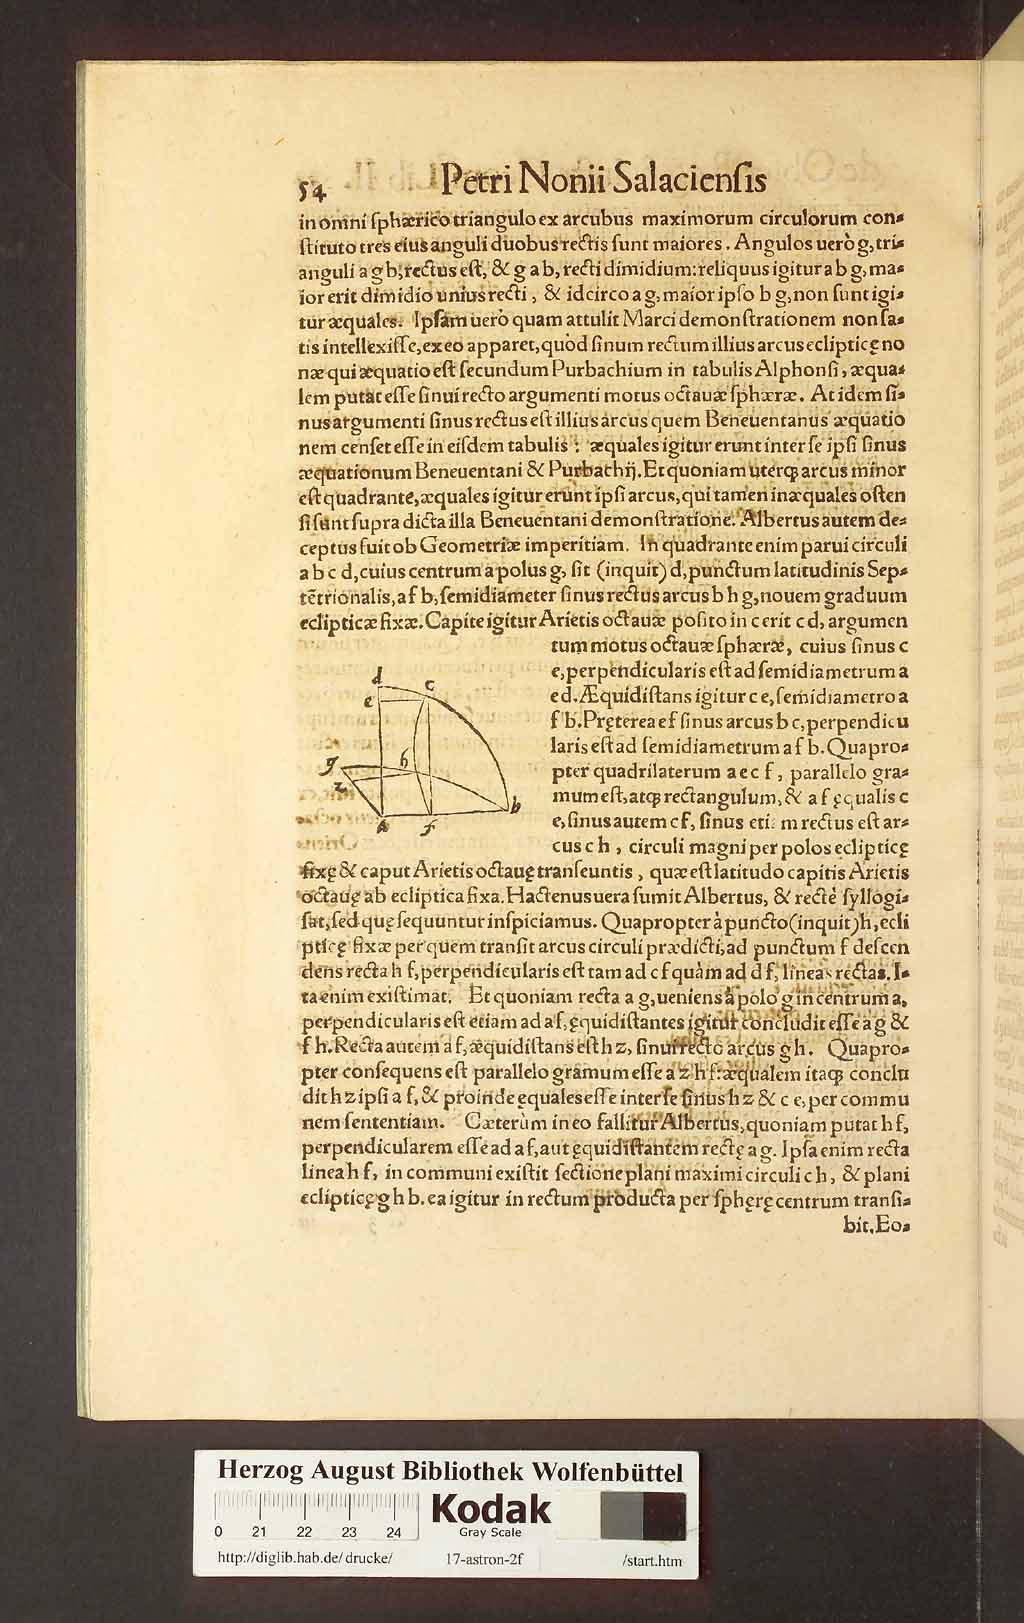 54 Petri Nonii Salaciensis
in omni sphærico triangulo ex arcubus maximorum circulorum con-
stituto tres eius anguli duobus rectis sunt maiores. Angulos uerò g, tri-
anguli a g b, rectus est, & g a b, recti dimidium: reliquus igitur a b g, ma-
ior erit dimidio unius recti, & idcirco a g, maior ipso b g, non sunt igi-
tur æquales. Ipsam uerò quam attulit Marci demonstrationem non sa-
tis intellexisse, ex eo apparet, quòd sinum rectum illius arcus eclipticę no
næ qui æquatio est secundum Purbachium in tabulis Alphonsi, æqua-
lem putat esse sinui recto argumenti motus octauæ sphæræ. At idem si-
nus argumenti sinus rectus est illius arcus quem Beneuentanus æquatio
nem censet esse in eisdem tabulis: æquales igitur erunt inter se ipsi sinus
æquationum Beneuentani & Purbachij. Et quoniam uterqꝫ arcus minor
est quadrante, æquales igitur erunt ipsi arcus, qui tamen inæquales osten
si sunt supra dicta illa Beneuentani demonstratione. Albertus autem de-
ceptus fuit ob Geometriæ imperitiam. In quadrante enim parui circuli
a b c d, cuius centrum a polus g, sit (inquit) d, punctum latitudinis Sep-
tẽtrionalis, a f b, semidiameter sinus rectus arcus b h g, nouem graduum
eclipticæ fixæ. Capite igitur Arietis octauæ posito in c erit c d, argumen
tum motus octauæ sphæræ, cuius sinus c
e, perpendicularis est ad semidiametrum a
e d. Æquidistans igitur c e, semidiametro a
f b. Pręterea e f sinus arcus b c, perpendicu
laris est ad semidiametrum a f b. Quapro-
pter quadrilaterum a e c f, parallelo gra-
mum est, atqꝫ rectangulum, & a f ęqualis c
e, sinus autem c f, sinus etiam rectus est ar-
cus c h, circuli magni per polos eclipticę
d
c
e
g
h
z
b
a
f
fixę & caput Arietis octauę transeuntis, quæ est latitudo capitis Arietis
octauę ab ecliptica fixa. Hactenus uera sumit Albertus, & rectè syllogi-
sat, sed quę sequuntur inspiciamus. Quapropter à puncto (inquit) h, ecli
pticę fixæ per quem transit arcus circuli prædicti, ad punctum f descen
dens recta h f, perpendicularis est tam ad c f quàm ad d f, lineas rectas. I-
ta enim existimat. Et quoniam recta a g, ueniens à polo g in centrum a,
perpendicularis est etiam ad a f, ęquidistantes igitur concludit esse a g &
f h. Recta autem a f, æquidistans est h z, sinui recto arcus g h. Quapro-
pter consequens est parallelo gramum esse a z h f: æqualem itaqꝫ conclu
dit h z ipsi a f, & proinde ęquales esse inter se sinus h z & c e, per commu
nem sententiam. Cæterùm in eo fallitur Albertus, quoniam putat h f,
perpendicularem esse ad a f, aut ęquidistantem rectę a g. Ipsa enim recta
linea h f, in communi existit sectione plani maximi circuli c h, & plani
eclipticę g h b. ea igitur in rectum producta per sphęrę centrum transi-
bit, Eo-
Herzog August Bibliothek Wolfenbüttel
0 21 22 23 24
Kodak
Gray Scale
http://diglib.hab.de/drucke/ 17-astron-2f /start.htm